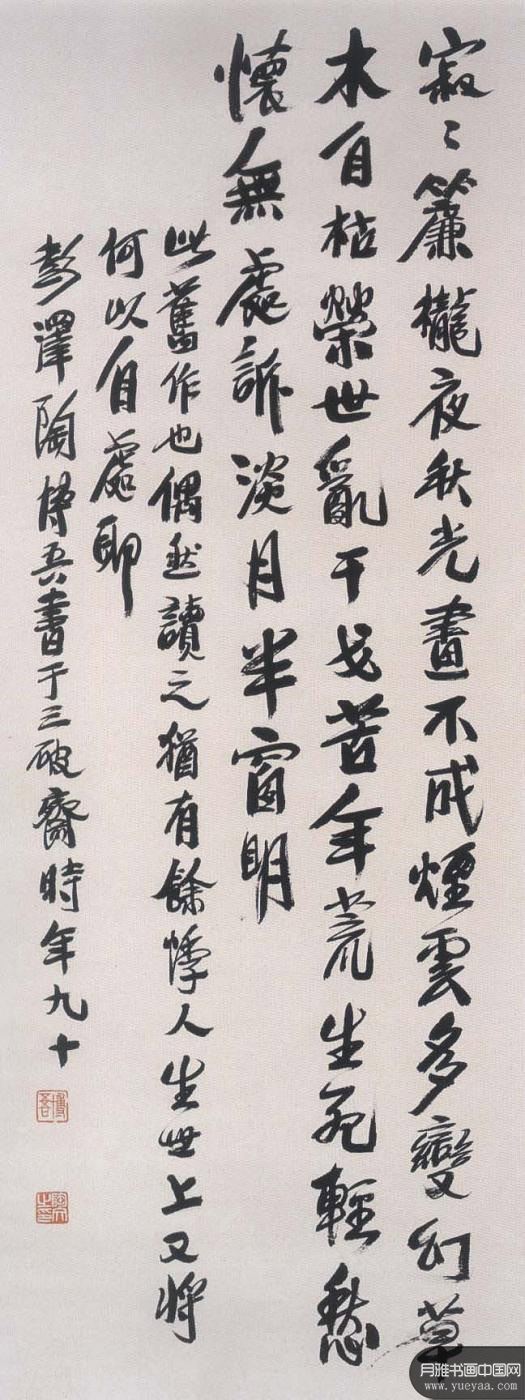 寂〻簾櫳夜秋光畫不成煙雲多變幻草
木自枯榮世亂干戈苦年荒生死輕愁
懷無處訴淡月半窗明
此舊作也偶然讀之猶有餘悸人生世上又將
何以自處耶
彭澤陶博吾書于三破齋時年九十
博吾
月雅书画中国网
www.yueyaa.com